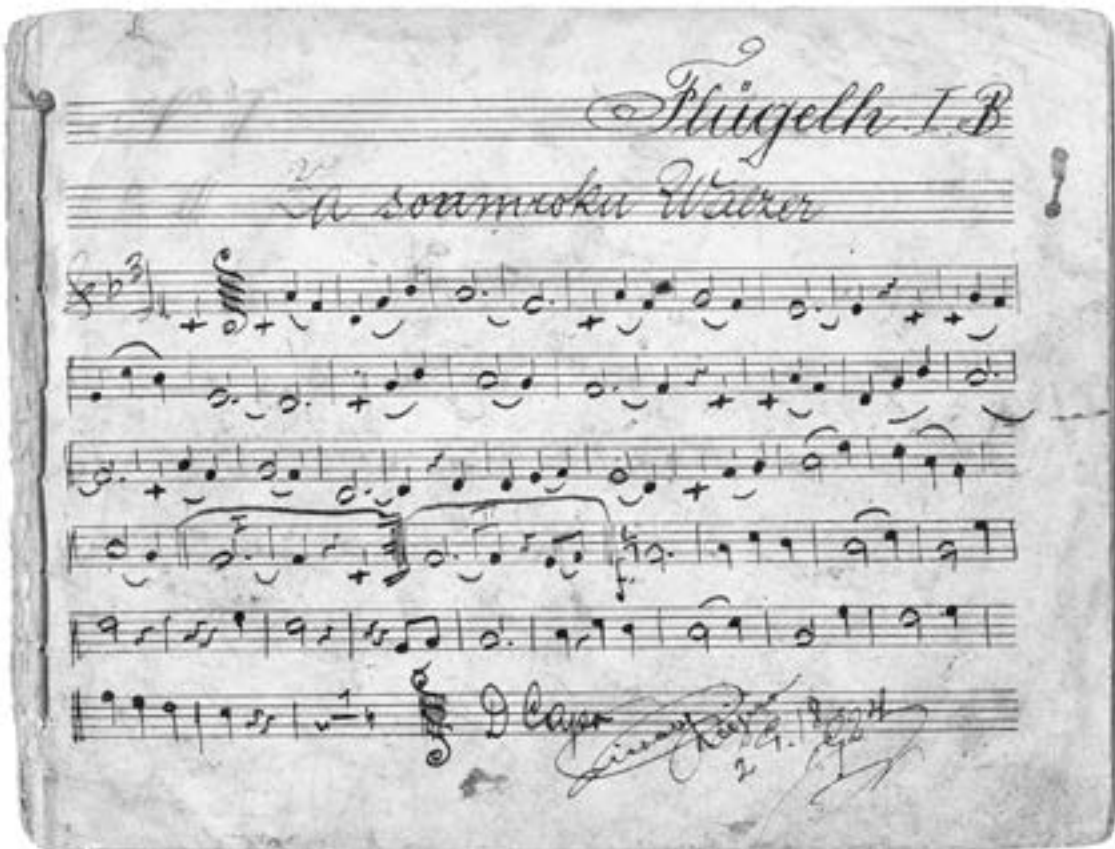 Flügelh. I. B
Za soumroku Walzer
I
II
1
D Capo